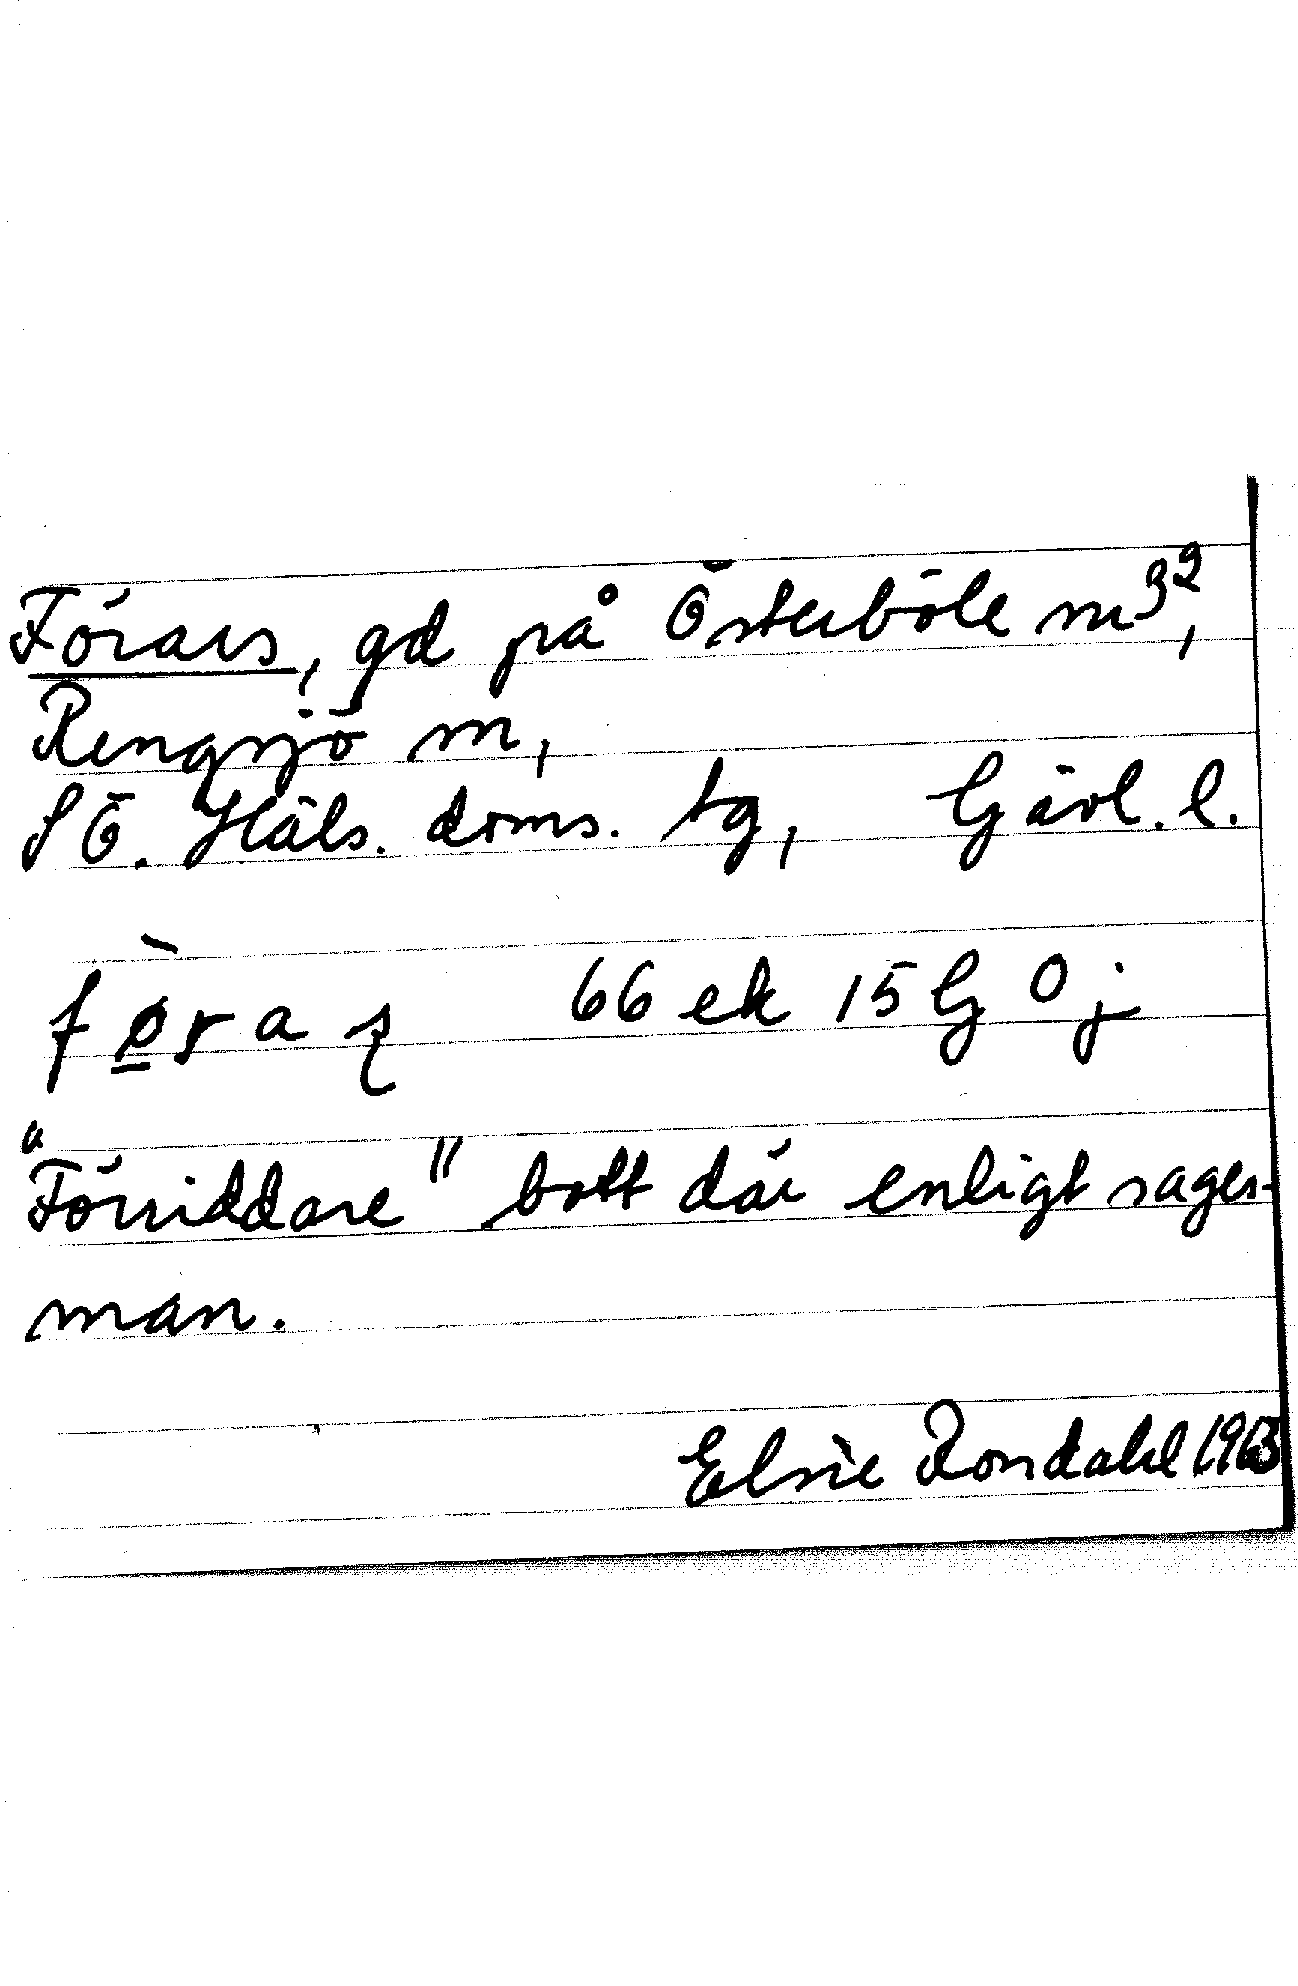 Förars, gd på Österböle m³²,
Rengsjö m,
S Ö. Häls. doms. tg, Gävl. l.
f ø̱̀ r a ʂ 66 ek 15 G O j
"Förriddare" bott där enligt sages-
man.
Elsie Rondahl 1963